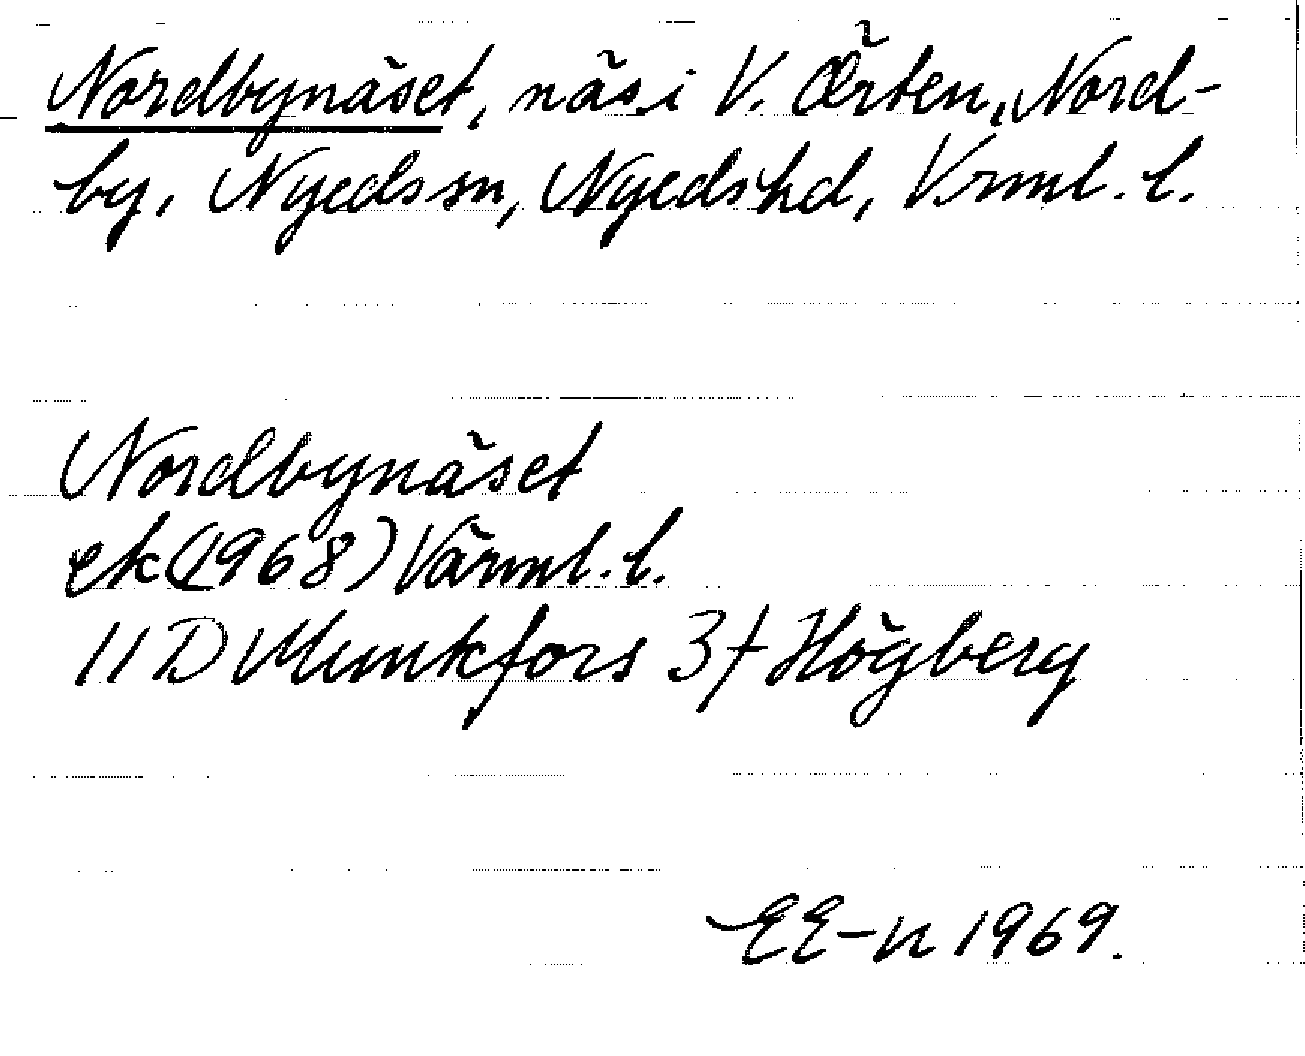 Nordbynäset, näs i V. Örten, Nord-
by, Nyedssn, Nyedshd, Vrml. l.
Nordbynäset
ek (1968) Värml. l.
11 D Munkfors 3f Högberg
EE-n 1969.